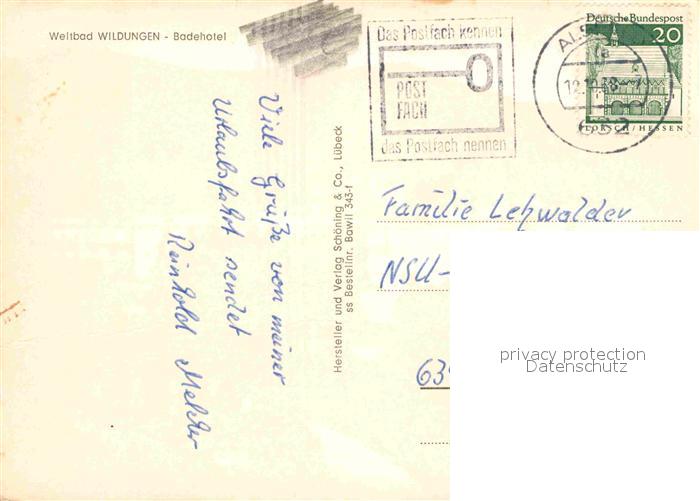 Weltbad WILDUNGEN - Badehotel
Das Postfach kennen
POST
FACH
das Postfach nennen
Deutsche Bundespost
20
LORSCH/HESSEN
Viele Grüße von meiner
Urlaubsfahrt sendet
Reinhold
Hersteller und Verlag Schöning & Co., Lübeck
ss Bestellnr. Bawil 343-f
Familie
NSU-
privacy protection
Datenschutz